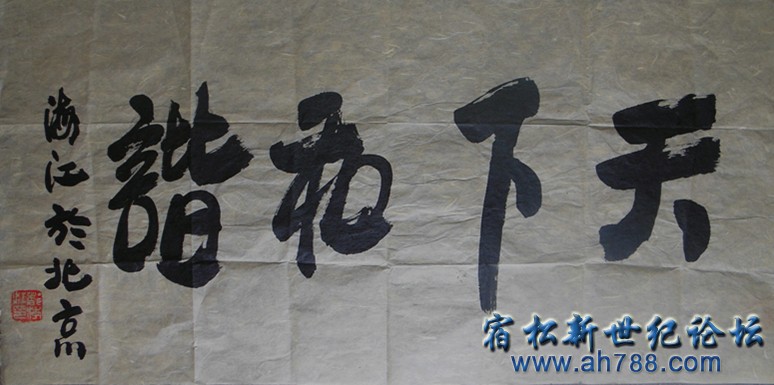 天下和諧
海江於北京
宿松新世纪论坛
www.ah788.com